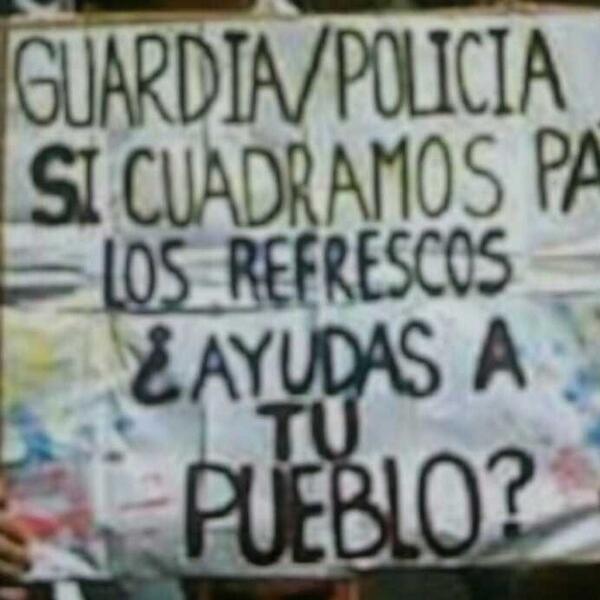 GUARDIA/POLICIA
SI CUADRAMOS PA'
LOS REFRESCOS
¿AYUDAS A
TU
PUEBLO?